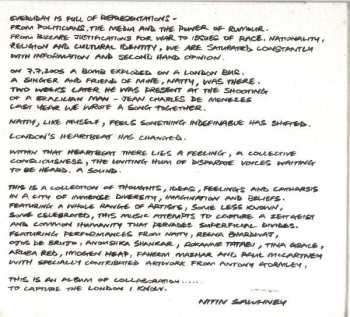 EVERYDAY IS FULL OF REPRESENTATIONS -
FROM POLITICIANS, THE MEDIA AND THE POWER OF RUMOUR.
FROM BIZARRE JUSTIFICATIONS FOR WAR TO ISSUES OF RACE, NATIONALITY,
RELIGION AND CULTURAL IDENTITY, WE ARE SATURATED CONSTANTLY
WITH INFORMATION AND SECOND HAND OPINION.
ON 7.7.2005 A BOMB EXPLODED ON A LONDON BUS.
A SINGER AND FRIEND OF MINE, NATTY, WAS THERE.
TWO WEEKS LATER HE WAS PRESENT AT THE SHOOTING
OF A BRAZILIAN MAN - JEAN CHARLES DE MENEZES
LAST YEAR WE WROTE A SONG TOGETHER.
NATTY, LIKE MYSELF, FEELS SOMETHING INDEFINABLE HAS SHIFTED.
LONDON'S HEARTBEAT HAS CHANGED.
WITHIN THAT HEARTBEAT THERE LIES A FEELING, A COLLECTIVE
CONSCIOUSNESS, THE UNITING HUM OF DISPARATE VOICES WAITING
TO BE HEARD. A SOUND.
THIS IS A COLLECTION OF THOUGHTS, IDEAS, FEELINGS AND CATHARSIS
IN A CITY OF IMMENSE DIVERSITY, IMAGINATION AND BELIEFS.
FEATURING A WHOLE RANGE OF ARTISTS, SOME LESS KNOWN,
SOME CELEBRATED, THIS MUSIC ATTEMPTS TO CAPTURE A ZEITGEIST
AND COMMON HUMANITY THAT PERVADES SUPERFICIAL DIVIDES.
FEATURING PERFORMANCES FROM NATTY, REENA BHARDWAJ,
OJOS DE BRUJO, ANOUSHKA SHANKAR, ROXANNE TATAEI, TINA GRACE,
ARUBA RED, IMOGEN HEAP, FAHEEM MAZHAR AND PAUL MCCARTNEY
WITH SPECIALLY CONTRIBUTED ARTWORK FROM ANTONY GORMLEY.
THIS IS AN ALBUM OF COLLABORATION.....
TO CAPTURE THE LONDON I KNOW.
NITIN SAWHNEY